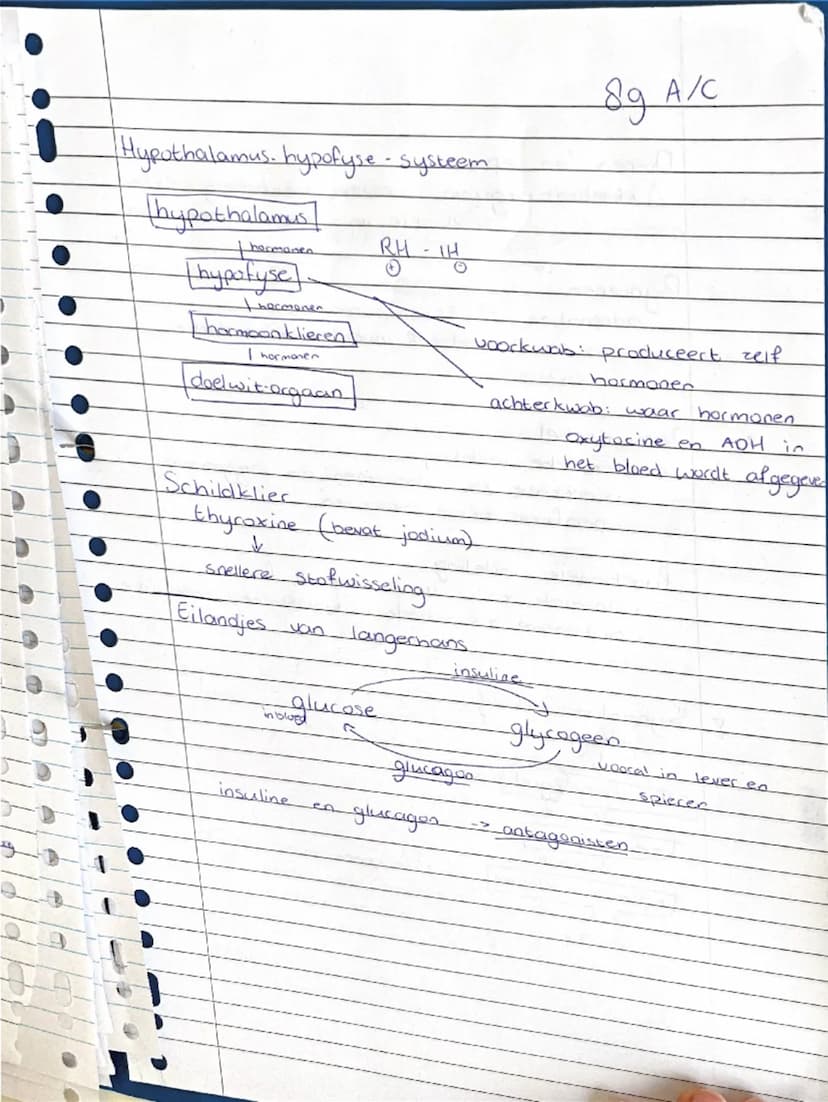 89 A/C
Hypothalamus-hypofyse-systeem
hypothalamus
hormonen
RH - IH
+ -
hypofyse
hormonen
hormoonklieren
hormonen
doelwit-orgaan
voorkwab: produceert zelf
hormonen
achterkwab: waar hormonen
oxytocine en ADH in
het bloed wordt afgegeve
Schildklier
thyroxine (bevat jodium)
↓
snellere stofwisseling
Eilandjes van langerhans
insuline
glucose
in bloed
glycogeen
glucagon
vooral in lever en
spieren
insuline en glucagon -> antagonisten